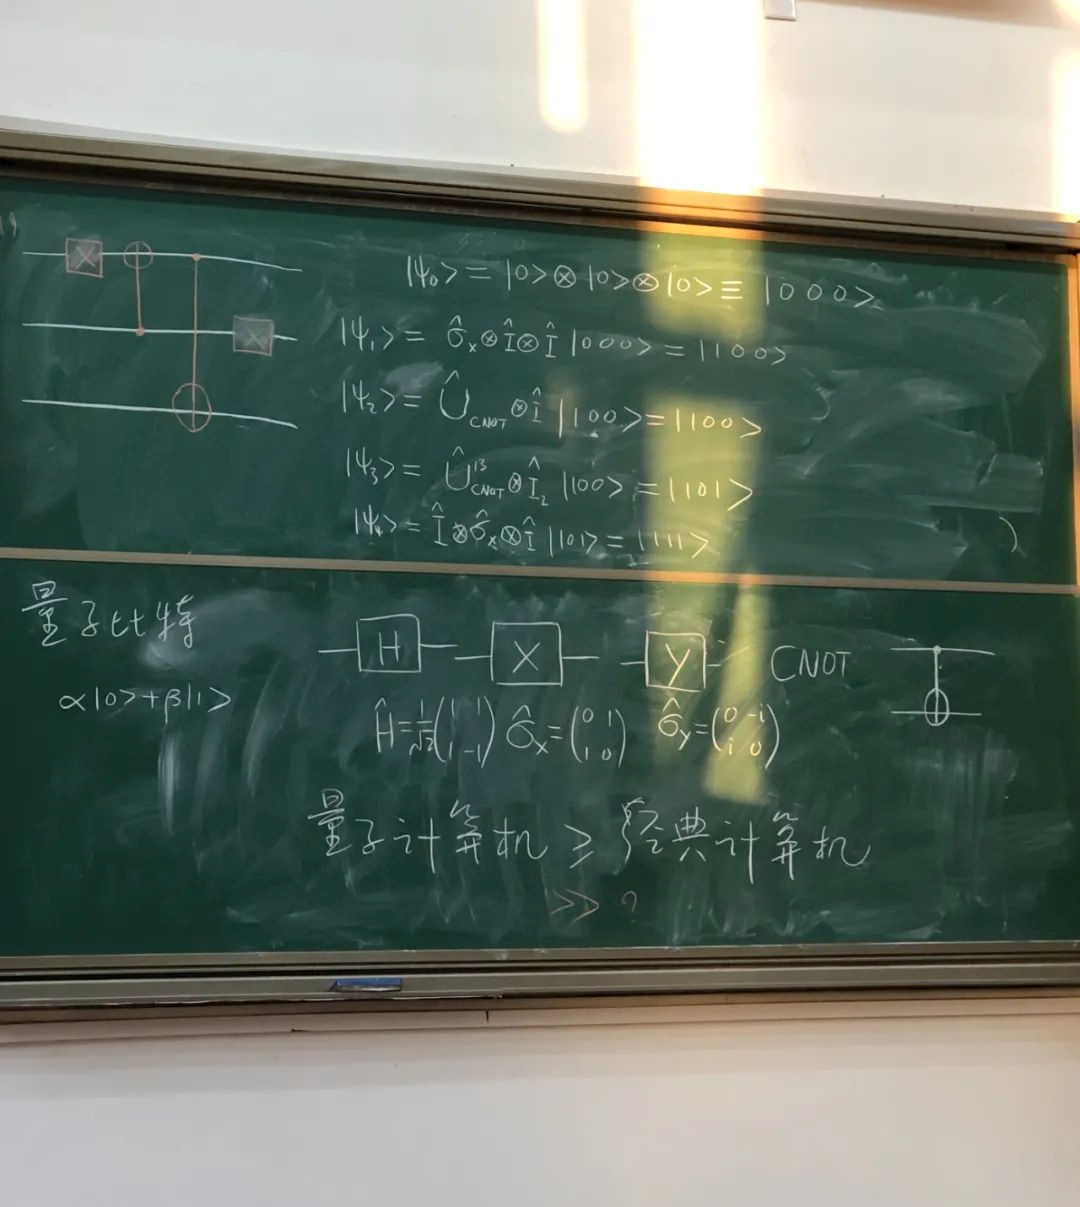 X
X
|ψ₀> = |0>⊗|0>⊗|0> ≡ |000>
|ψ₁> = σ̂ₓ⊗Î⊗Î |000> = |100>
|ψ₂> = Û_CNOT ⊗Î |100> = |100>
|ψ₃> = Û¹³_CNOT ⊗Î₂ |100> = |101>
|ψ₄> = Î⊗σ̂ₓ⊗Î |101> = |111>
量子比特
α|0>+β|1>
H X Y CNOT
Ĥ=1/√2(1 1 1 -1) σ̂ₓ=(0 1 1 0) σ̂y=(0 -i i 0)
量子计算机 ≥ 经典计算机
>> ?